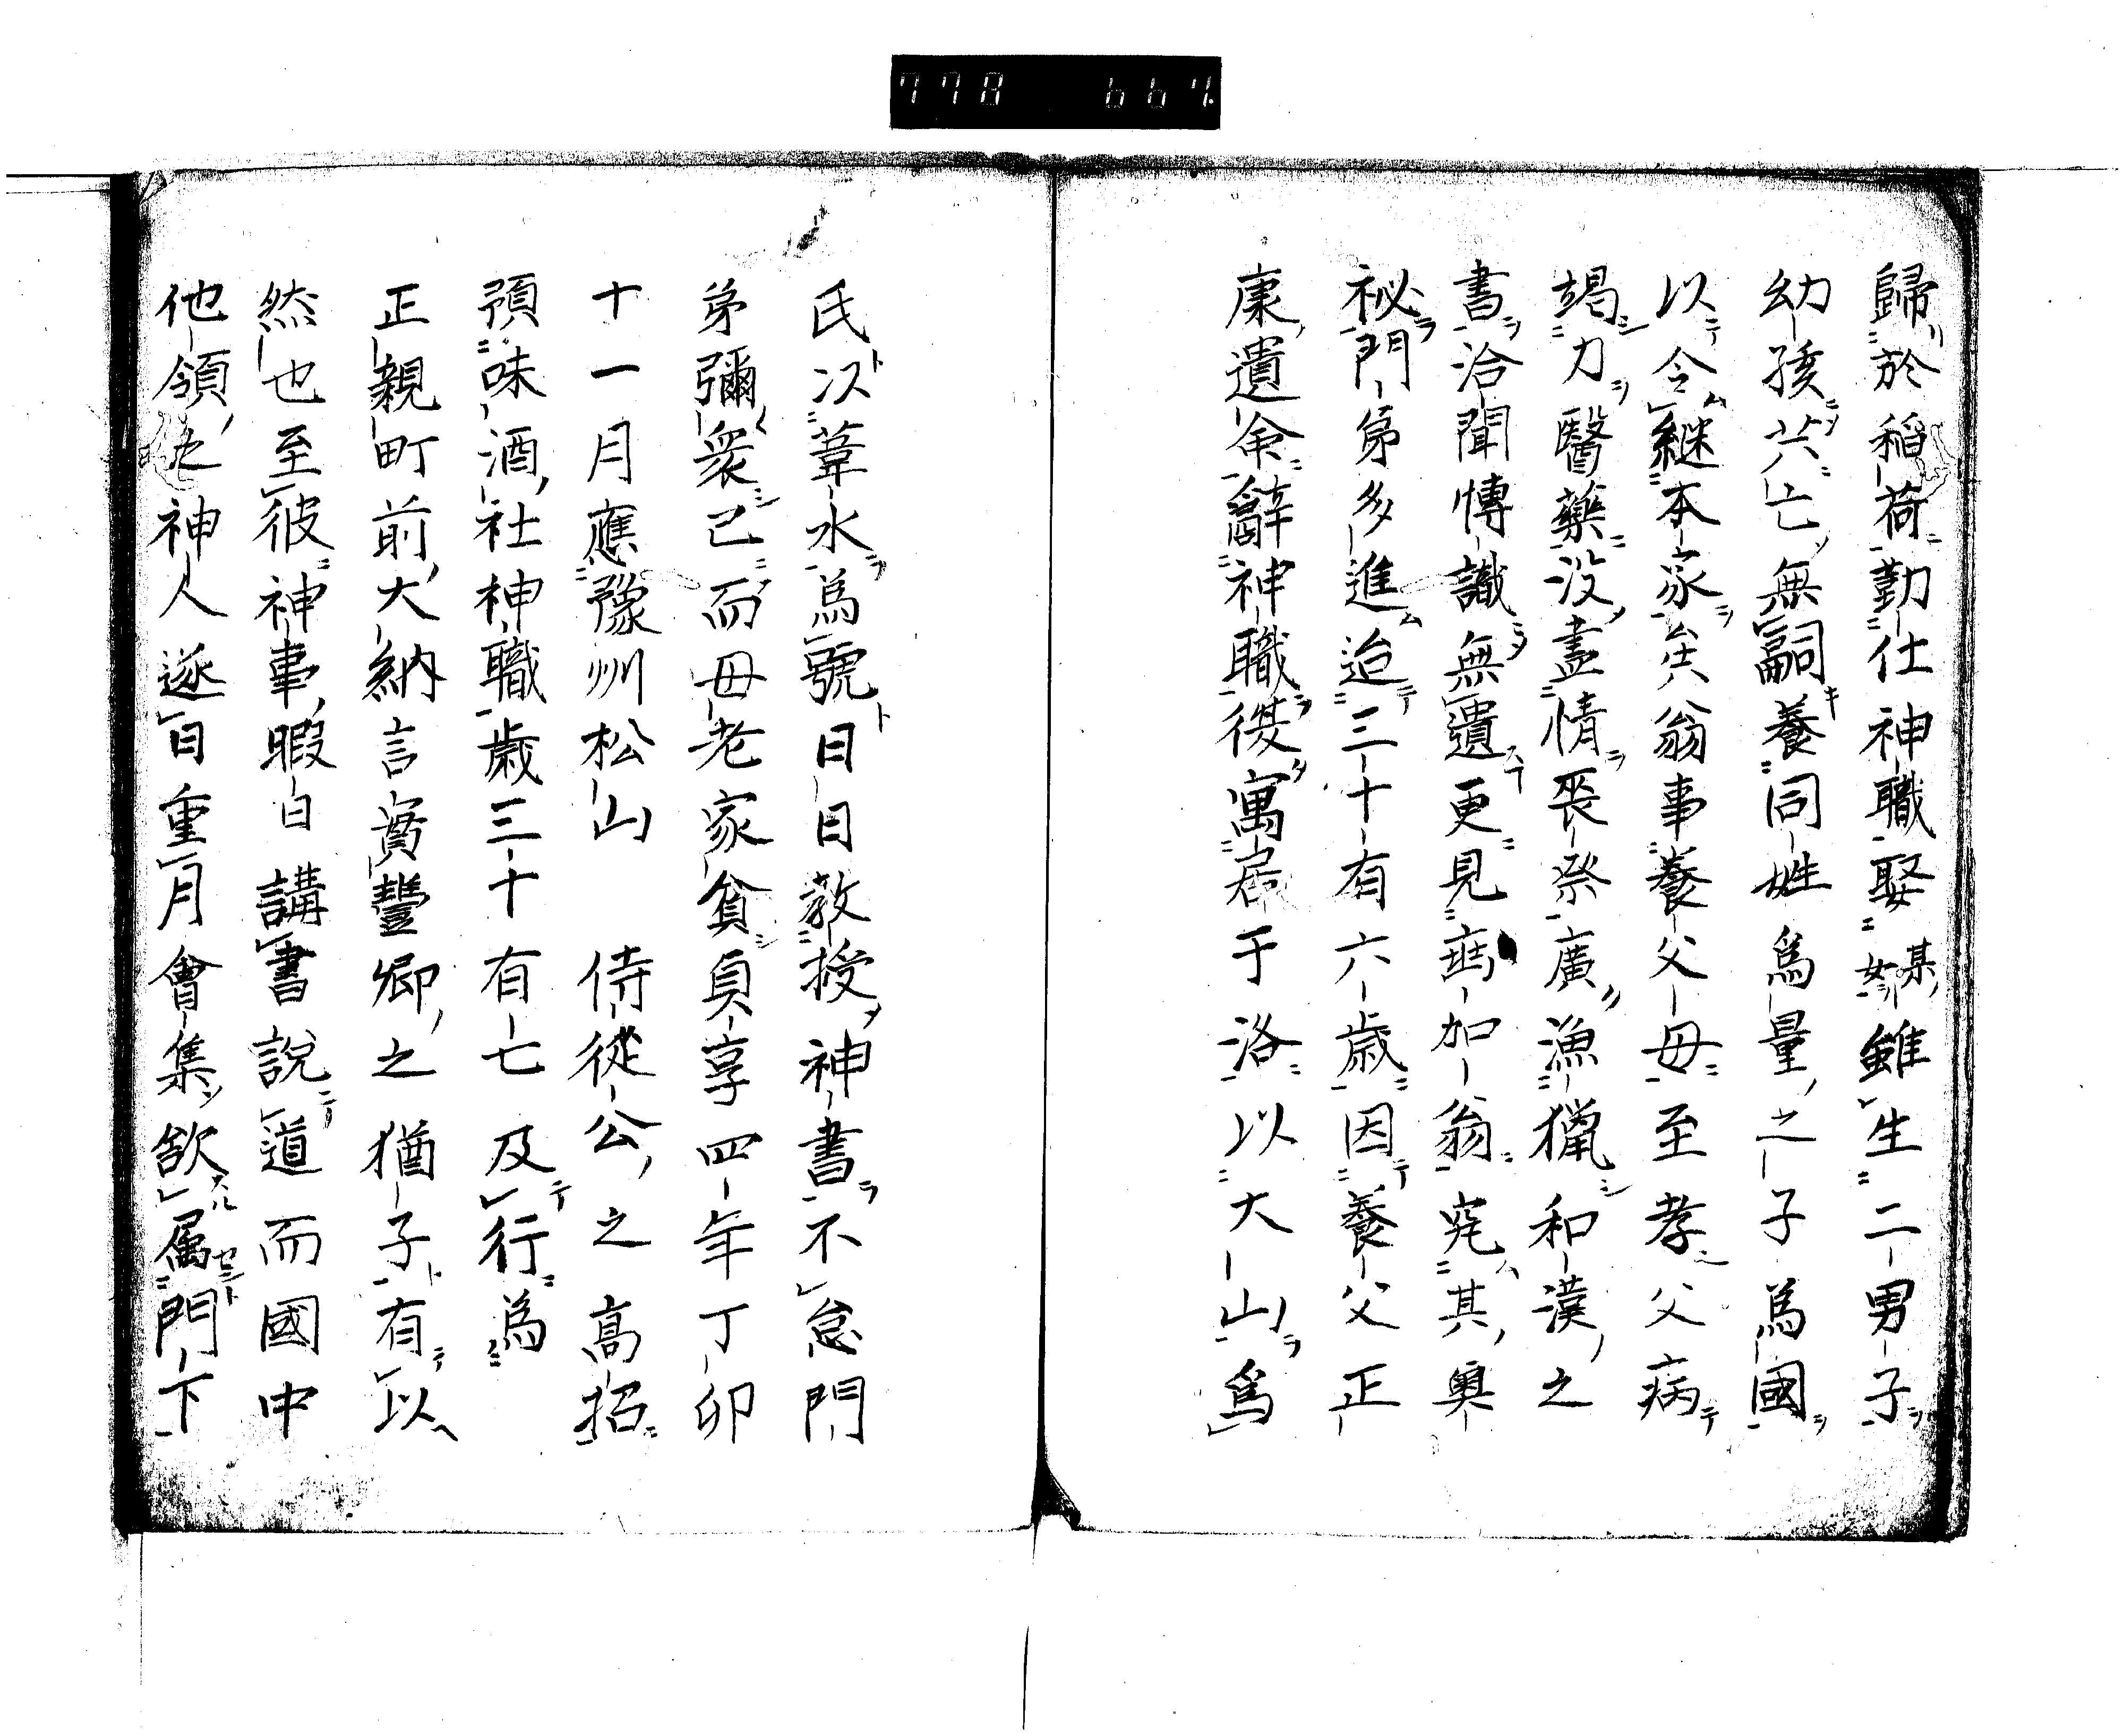 778 667
歸於稲荷勤仕神職娶某女雖生二男子
幼孩共亡無嗣養同姓爲量之子爲國
以令継本家矣翁事養父母至孝父病
竭力醫藥没盡情喪祭廣漁獵和漢之
書洽聞博識無遺更見垂加翁究其奥
祕門弟多進迨三十有六歳因養父正
康遺命辭神職役寓居于洛以大山爲
氏以葦水爲號日日教授神書不怠門
弟彌衆已而母老家貧貞享四年丁卯
十一月應豫州松山 侍從公之高招
預味酒社神職歳三十有七及行爲
正親町前大納言實豐卿之猶子有以
然也至彼神事暇日講書說道而國中
他領之神人逐日重月會集欲属門下